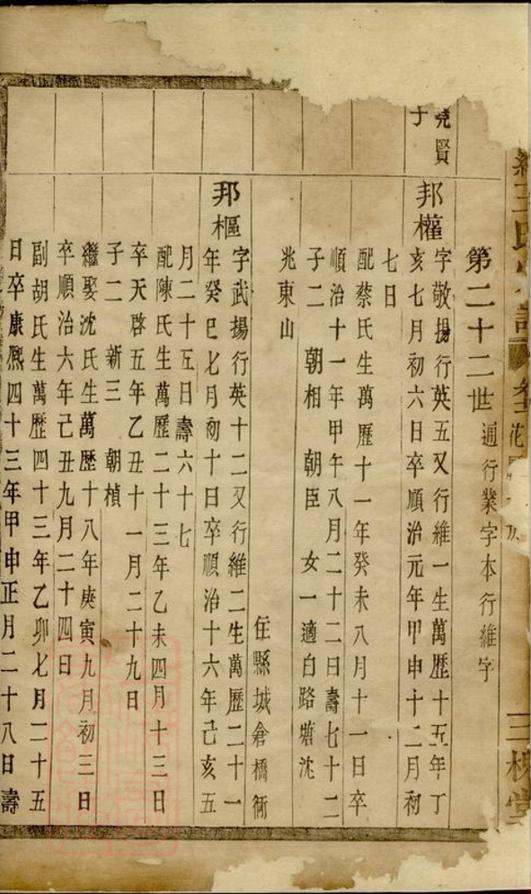 王氏
三槐堂
第二十二世 通行業字本行維字
堯賢子
邦權 字敬揚行英五又行維一生萬歷十五年丁
亥七月初六日卒順治元年甲申十二月初
七日
配蔡氏生萬歷十一年癸未八月十一日卒
順治十一年甲午八月二十二日壽七十二
子二 朝相 朝臣 女一適白路塘沈
兆東山
住縣城倉橋衖
邦樞 字武揚行英十二又行維二生萬歷二十一
年癸巳七月初十日卒順治十六年己亥五
月二十五日壽六十七
配陳氏生萬歷二十三年乙未四月十三日
卒天啓五年乙丑十一月二十九日
子二 新三 朝楨
繼娶沈氏生萬歷十八年庚寅九月初三日
卒順治六年己丑九月二十四日
副胡氏生萬歷四十三年乙卯七月二十五
日卒康熙四十三年甲申正月二十八日壽